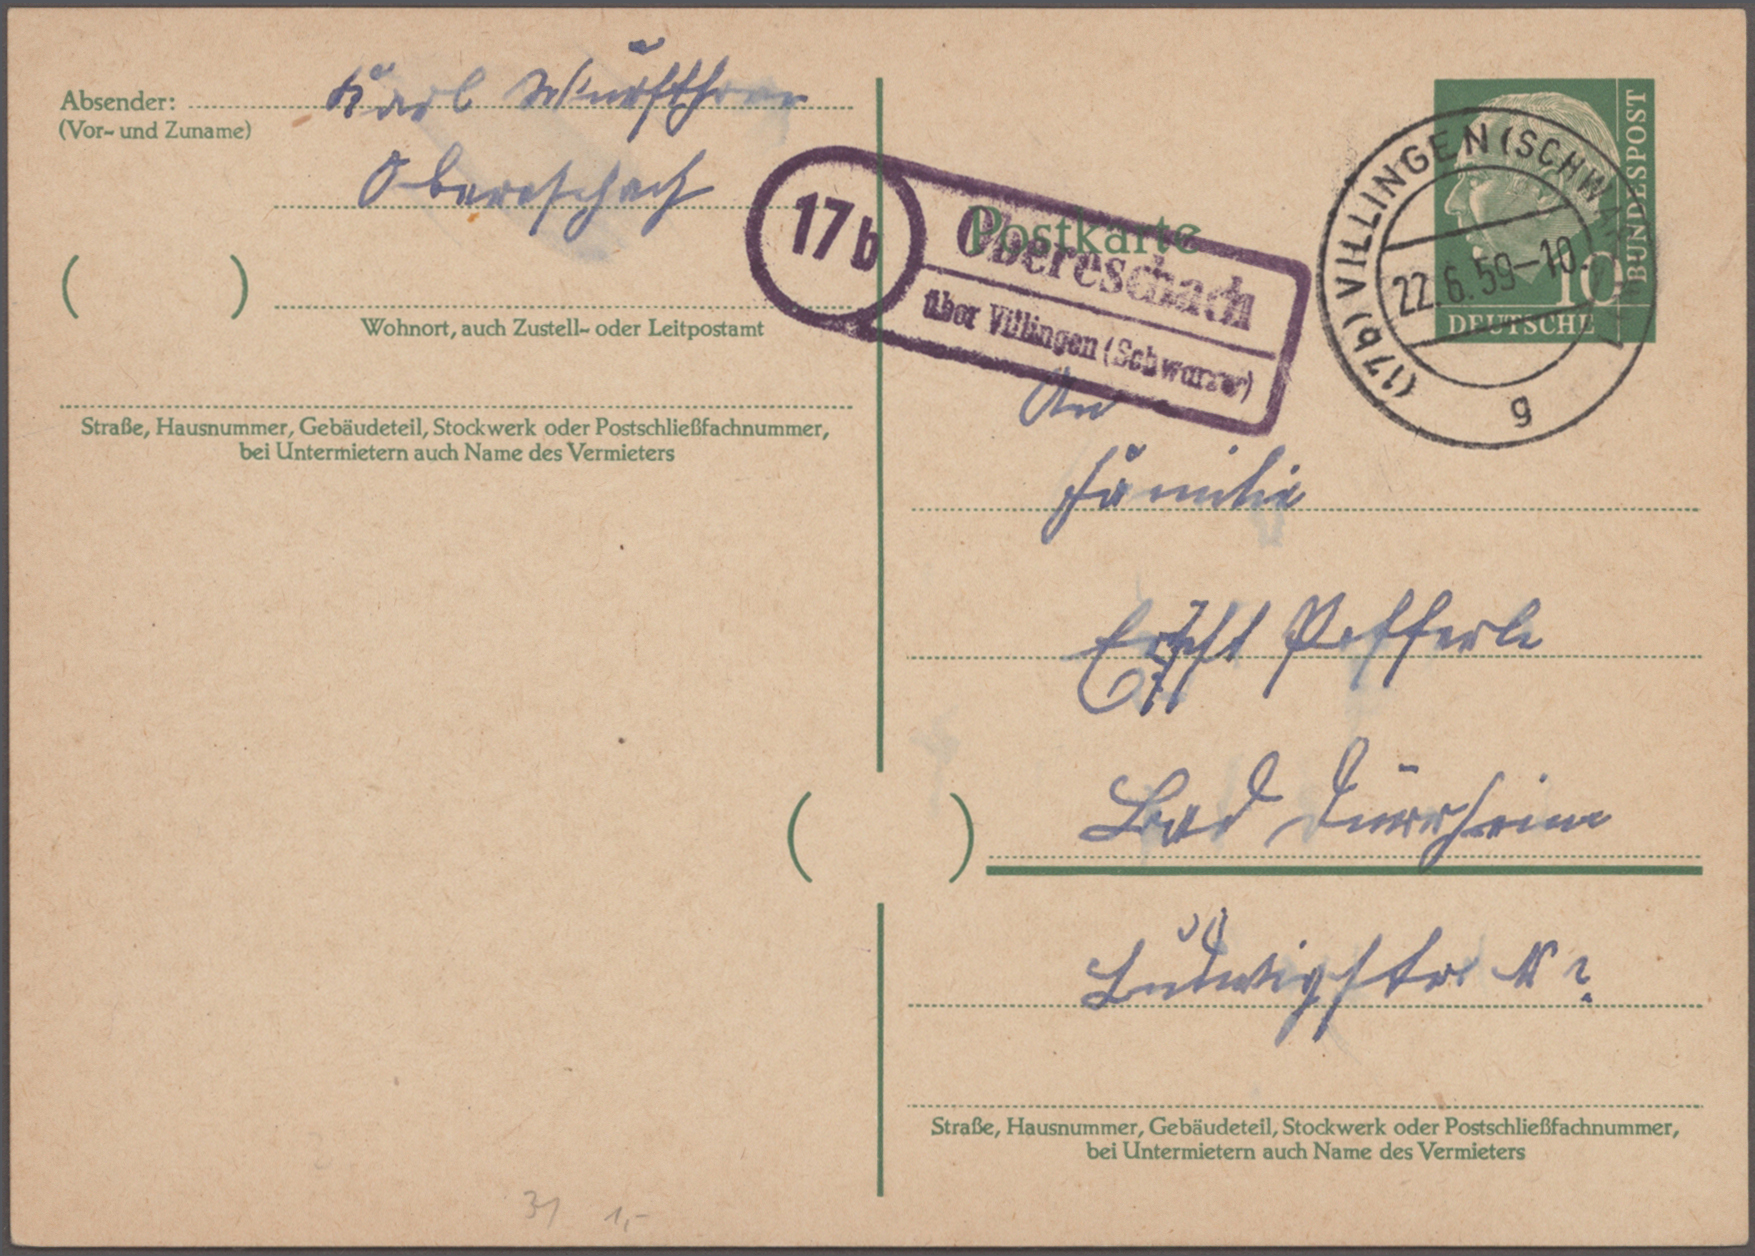 Absender: Karl
(Vor- und Zuname)
Obereschach
Wohnort, auch Zustell- oder Leitpostamt
Straße, Hausnummer, Gebäudeteil, Stockwerk oder Postschließfachnummer,
bei Untermietern auch Name des Vermieters
17b
Obereschach
über Villingen (Schwarzw)
Postkarte
(17b) VILLINGEN (SCHWARZW)
22.6.59-10.
g
DEUTSCHE
BUNDESPOST
10
An
Familie
Pfefferle
Bad Dürrheim
Ludwigstr. N ?
Straße, Hausnummer, Gebäudeteil, Stockwerk oder Postschließfachnummer,
bei Untermietern auch Name des Vermieters
31 1,-